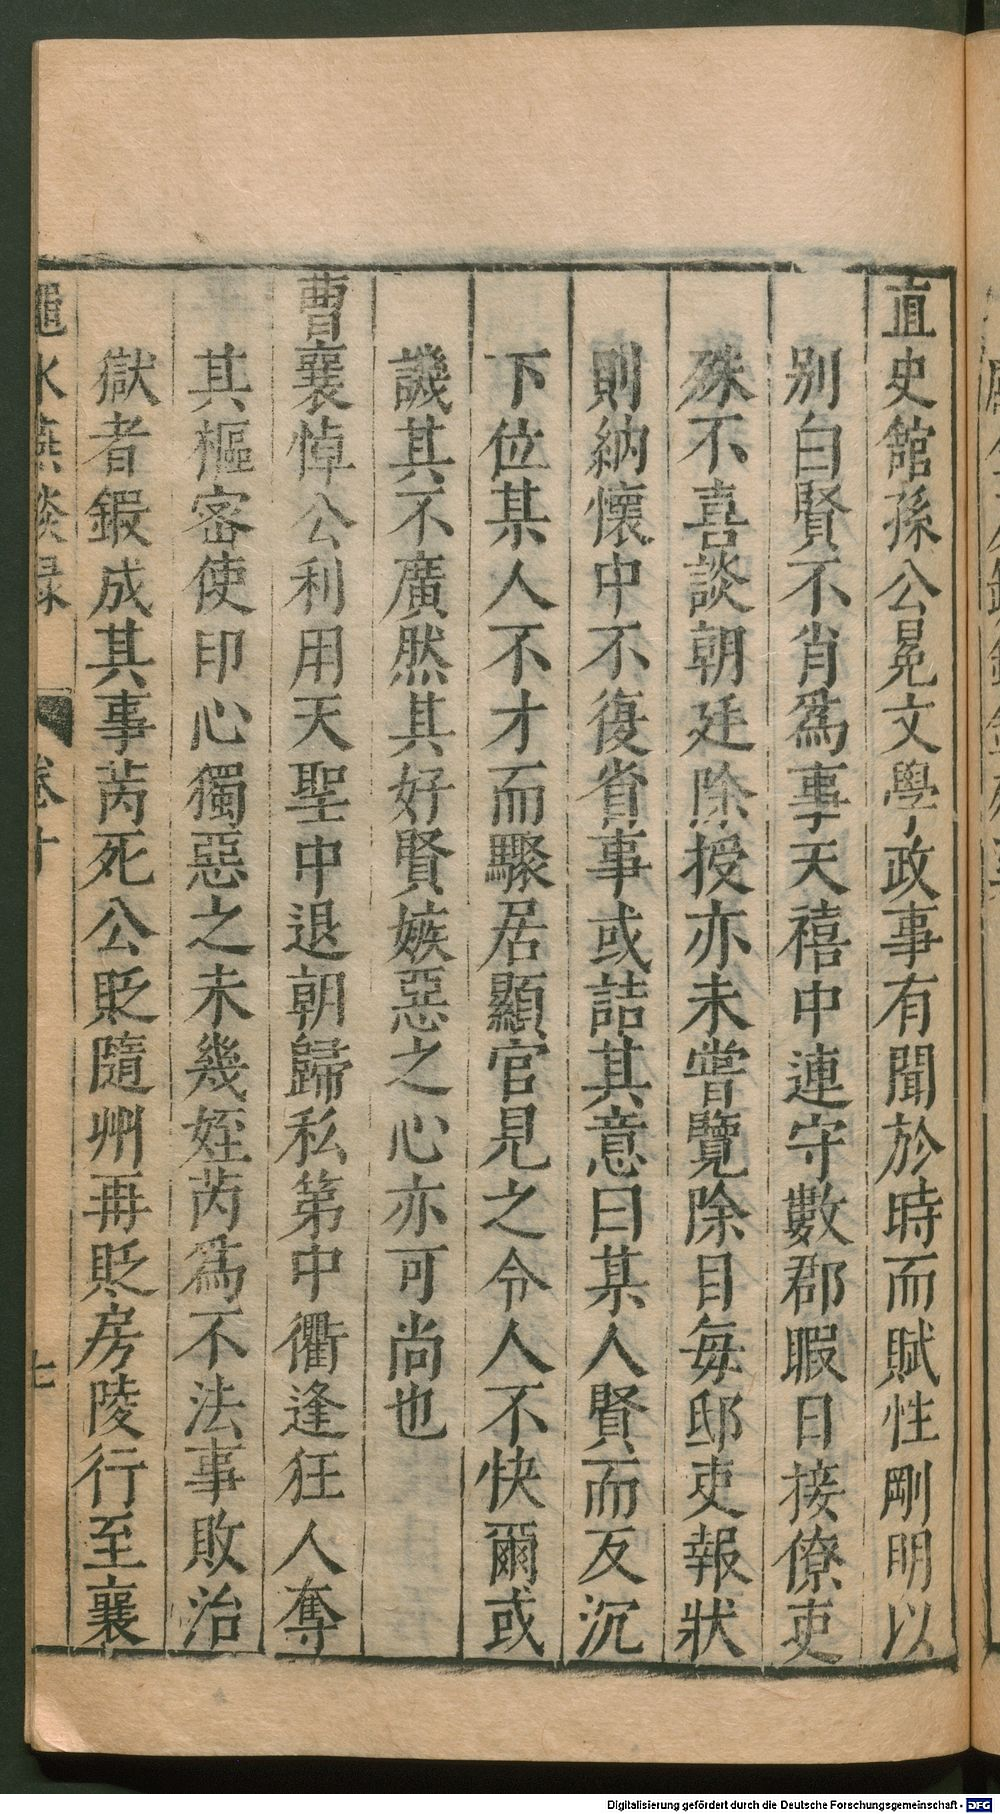 直史館孫公冕文學政事有聞於時而賦性剛明以
别白賢不肖爲事天禧中連守數郡暇日接僚吏
殊不喜談朝廷除授亦未嘗覽除目每邸吏報狀
則納懷中不復省事或詰其意曰某人賢而反沉
下位某人不才而驟居顯官見之令人不快爾或
譏其不廣然其好賢嫉惡之心亦可尚也
曹襄悼公利用天聖中退朝歸私第中衢逢狂人奪
其樞密使印心獨惡之未幾姪芮爲不法事敗治
獄者鍜成其事芮死公貶隨州再貶房陵行至襄
澠水燕談録 卷十 七
Digitalisierung gefördert durch die Deutsche Forschungsgemeinschaft - DFG